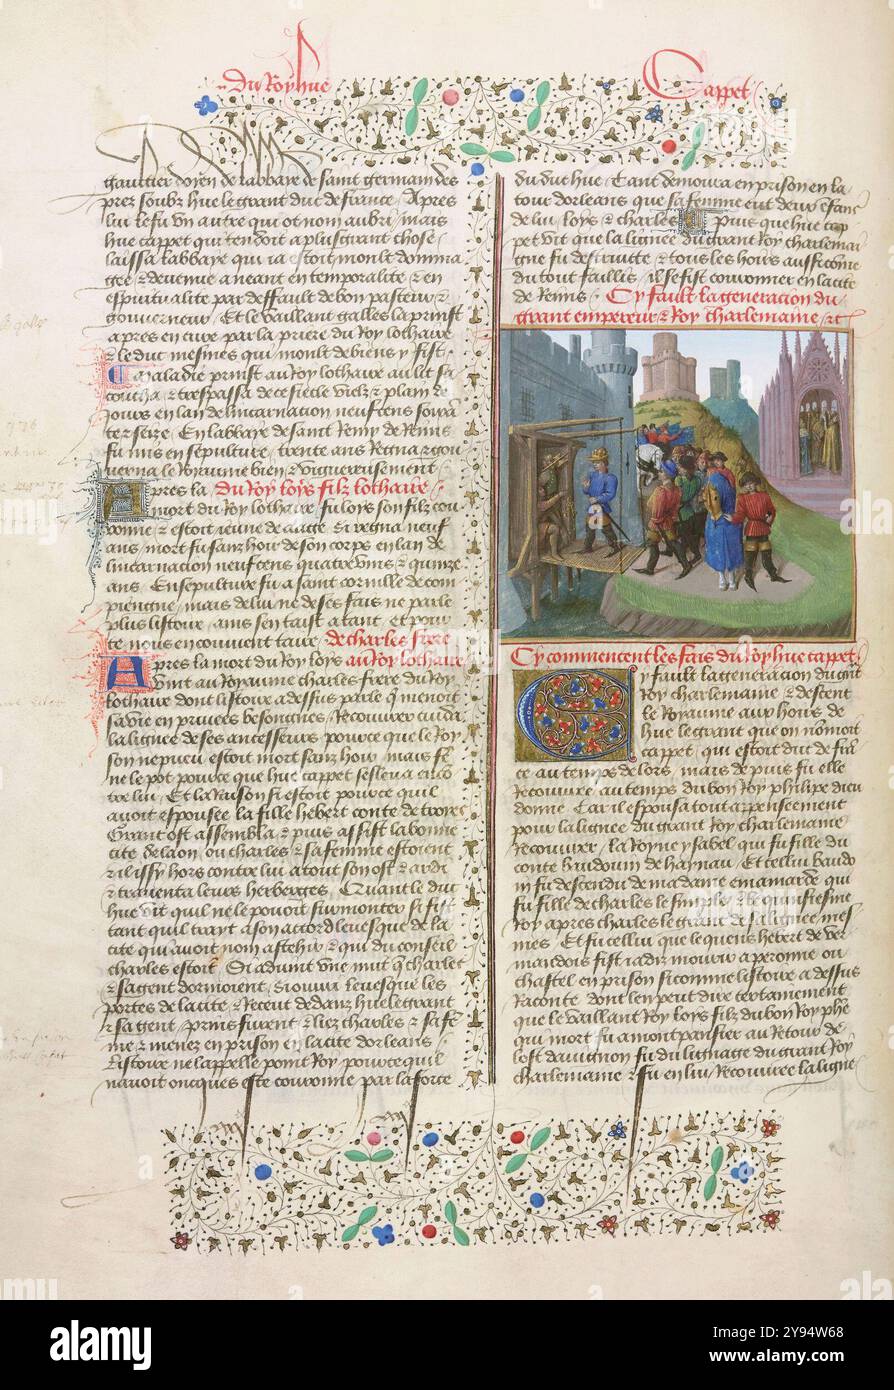 Du Roy hue
Cappet
gaultier doyen de labbaye de saint germain des
prez soubz hue le grant duc de france / Apres
lui le fu vn autre qui ot nom aubri / mais
hue cappet qui tendoit a plus grant chose /
laissa labbaye qui ia estoit moult domma
gee / & deuenue a neant en temporalite & en
espiritualite par deffault de bon pasteur &
gouuerneur / Et le vaillant galles la prinst
apres en cure par la priere du Roy lothaire
& le duc mesmes qui moult de biens y fist /
Maladie prinst au Roy lothaire au lit sa
coucha / & trespassa de ce siecle vielz & plain de
Jours en lan de lincarnation neufcens soixa
te & seize / En labbaye de saint Remy de Reins
fu mis en sepulture / trente ans Regna & gou
uerna le Royaume bien & viguereusement /
Apres la du Roy loys filz lothaire /
mort du Roy lothaire fu loys son filz cou
ronne / & estoit jeune de aage Si regna neuf
ans / mort fu sanz hoir de son corps en lan de
lincarnation neufcens quatre vins & quinze
ans / En sepulture fu a saint cornille de com
piengne / mais de lui ne de ses fais ne parle
plus listoire / ains sen taist a tant / et pour
te nous en couuient taire / de charles frere
Apres la mort du Roy loys au Roy lothaire
vint au Royaume charles frere du Roy
lothaire dont listoire a dessus parle q menoit
sa vie en priuees besongnes / Recouurer cuida
la lignee de ses ancesseurs pource que le Roy
son nepueu estoit mort sanz hoir / mais fe
ne le pot pource que hue cappet se sleua enco
tre lui / Et la raison si estoit pource quil
auoit espousee la fille hebert conte de troies
Grant ost assembla / & puis assist la bonne
cite de laon / ou charles & sa femme estoient
& il issy hors contre lui a tout son ost & ardi
& trauenta leurs herberges / Quant le duc
hue vit quil ne le pouoit surmonter si fist
tant quil trayt a son accord leuesque de la
cite qui auoit nom ascelin & qui du conseil
charles estoit / Si aduint vne nuit q charles
& sa gent dormoient / si ouuri leuesque les
portes de la cite / & Recent dedanz hue le grant
& sa gent / prins furent & liez charles & sa fe
me & menez en prison en la cite dorleans /
Listoire ne lappelle point Roy / pource quil
nauoit oncques este couronne par la force
du duc hue / Tant demoura en prison en la
tour dorleans que sa femme eut deux efans
de lui / loys & charles Puis que hue cap
pet vit que la lignee du grant Roy charlemai
gne fu destruitte / & tous les hoirs aussi come
du tout faillis / il se fist couronner en la cite
de Reins / Cy fault la generation du
grant empereur & Roy Charlemaine / &c
Cy commencent les fais du roy hue cappet /
Cy fault la generation du gnt
Roy charlemaine / & descent
le Royaume aux hoirs de
hue le grant que on nomoit
cappet / qui estoit duc de fra
ce au temps de lors / mais depuis fu elle
Recouuree au temps du bon Roy philipe dieu
donne / Car il espousa tout appenseement
pour la lignee du grant Roy charlemaine
Recouurer / la Royne ysabel qui fu fille du
conte baudouin de haynau / Et cellui baudo
in fu descendu de ma dame emmarde qui
fu fille de charles le simple / & le quinsiesme
Roy apres charles le grant de sa lignee mes
mes / Et fu cellui que le quens hebert de ver
mandois fist iadiz mourir a peronne ou
chastel en prison si comme listoire a dessus
Raconte dont len peut dire certainement
que le vaillant Roy loys filz du bon Roy phe
qui mort fu a montpansier au Retour de
lost dauignon fu du lignage du grant Roy
charlemaine & fu en lui Recouuree la ligne
alamy
Image ID: 2Y94W68
www.alamy.com